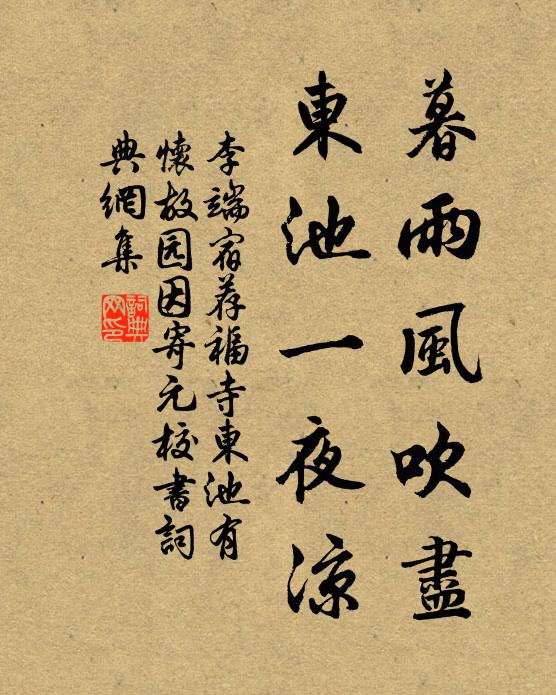 暮雨風吹盡
東池一夜涼
李端宿荐福寺東池有
懷故园因寄元校書詞
典網集
詞典
网印